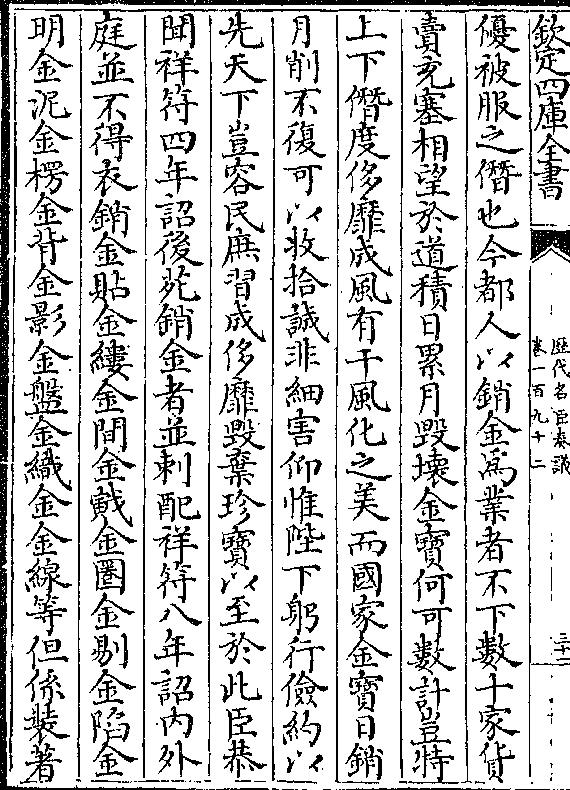 欽定四庫全書
歷代名臣奏議
卷一百九十二
三十二
優被服之僭也今都人以銷金為業者不下數十家貨
賣充塞相望於道積日累月毀壞金寶何可數計豈特
上下僭度侈靡成風有干風化之美而國家金寶日銷
月削不復可以收拾誠非細害仰惟陛下躬行儉約以
先天下豈容民庶習成侈靡毀棄珍寶以至於此臣恭
聞祥符四年詔後苑銷金者並刺配祥符八年詔內外
庭並不得衣銷金貼金縷金間金戭金圈金剔金陷金
明金泥金楞金背金影金盤金織金金線等但係裝著